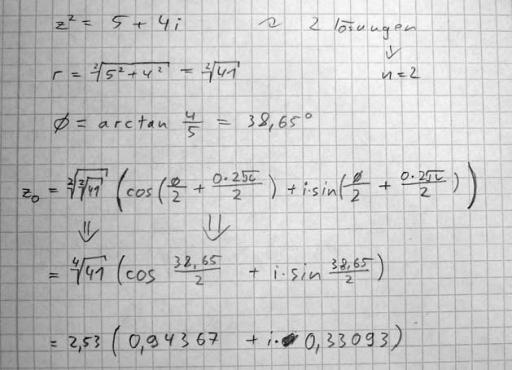 z² = 5 + 4i ~ 2 lösungen
⇓
r = ²√(5² + 4²) = ²√41 n = 2
φ = arctan 4/5 = 38,65°
z₀ = ²√(²√41) (cos(φ/2 + 0·2π/2) + i·sin(φ/2 + 0·2π/2))
⇓ ⇓
= ⁴√41 (cos 38,65/2 + i·sin 38,65/2)
= 2,53 (0,94367 + i·0,33093)